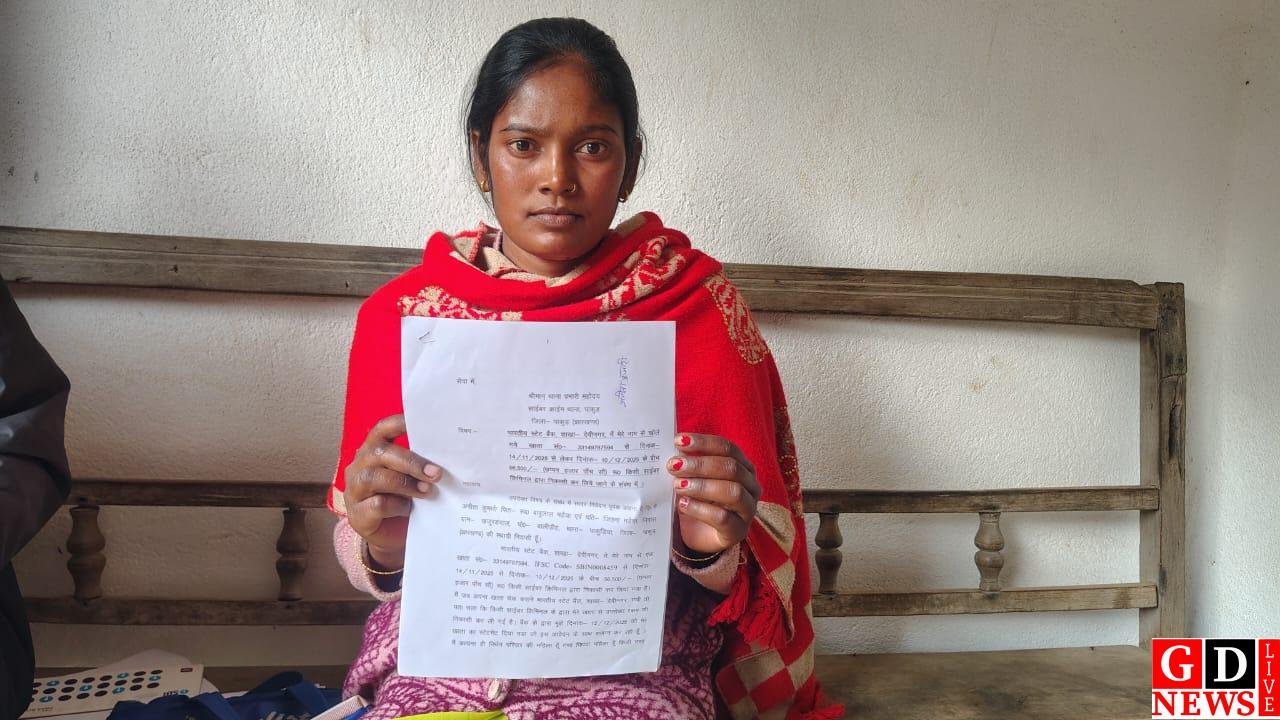 सेवा में,
श्रीमान् थाना प्रभारी महोदय
साईबर क्राईम थाना, पाकुड़
जिला:- पाकुड़ (झारखण्ड)
विषय:- भारतीय स्टेट बैंक, शाखा:- देवीनगर, में मेरे नाम से खोले
गये खाता सं0- 33149787594 से दिनांक-
14/11/2025 से लेकर दिनांक- 10/12/2025 के बीच
56,500/- (छप्पन हजार पाँच सौ) रू0 किसी साईबर
क्रिमिनल द्वारा निकासी कर लिये जाने के संबंध में ।
महाशय,
उपरोक्त विषय के संबंध में सादर निवेदन पूर्वक कहना है कि मैं
(झारखण्ड) की स्थायी निवासी हूँ।
भारतीय स्टेट बैंक, शाखा:- देवीनगर, में मेरे नाम से एक
खाता सं0- 33149787594, IFSC Code- SBIN0008459 से दिनांक
14/11/2025 से दिनांक- 10/12/2025 के बीच 56,500/- (छप्पन
हजार पाँच सौ) रू0 किसी साईबर क्रिमिनल द्वारा निकासी कर लिया गया है।
मैं जब अपना खाता चेक कराने भारतीय स्टेट बैंक, शाखा:- देवीनगर, गयी तो
पता चला कि किसी साईबर क्रिमिनल के द्वारा मेरे खाता से उपरोक्त रकम की
निकासी कर ली गई है। बैंक के द्वारा मुझे दिनांक:- 12/12/2025 को मेरे
खाता का स्टेटमेंट दिया गया जो इस आवेदन के साथ संलग्न कर रही हूँ ।
GD
NEWS
LIVE